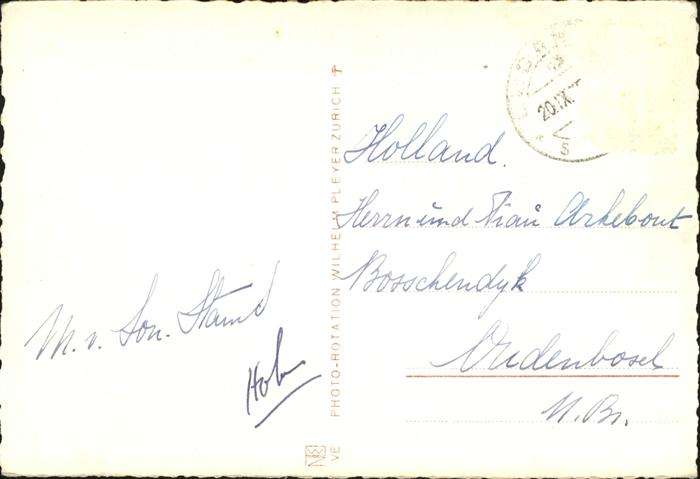 20.IX.
S
Holland.
Herrn und Frau Arkebout
Bosschendyk
Oudenbosch
N. Br.
M. v. Son.
PHOTO-ROTATION WILHELM PLEYER ZURICH
VE